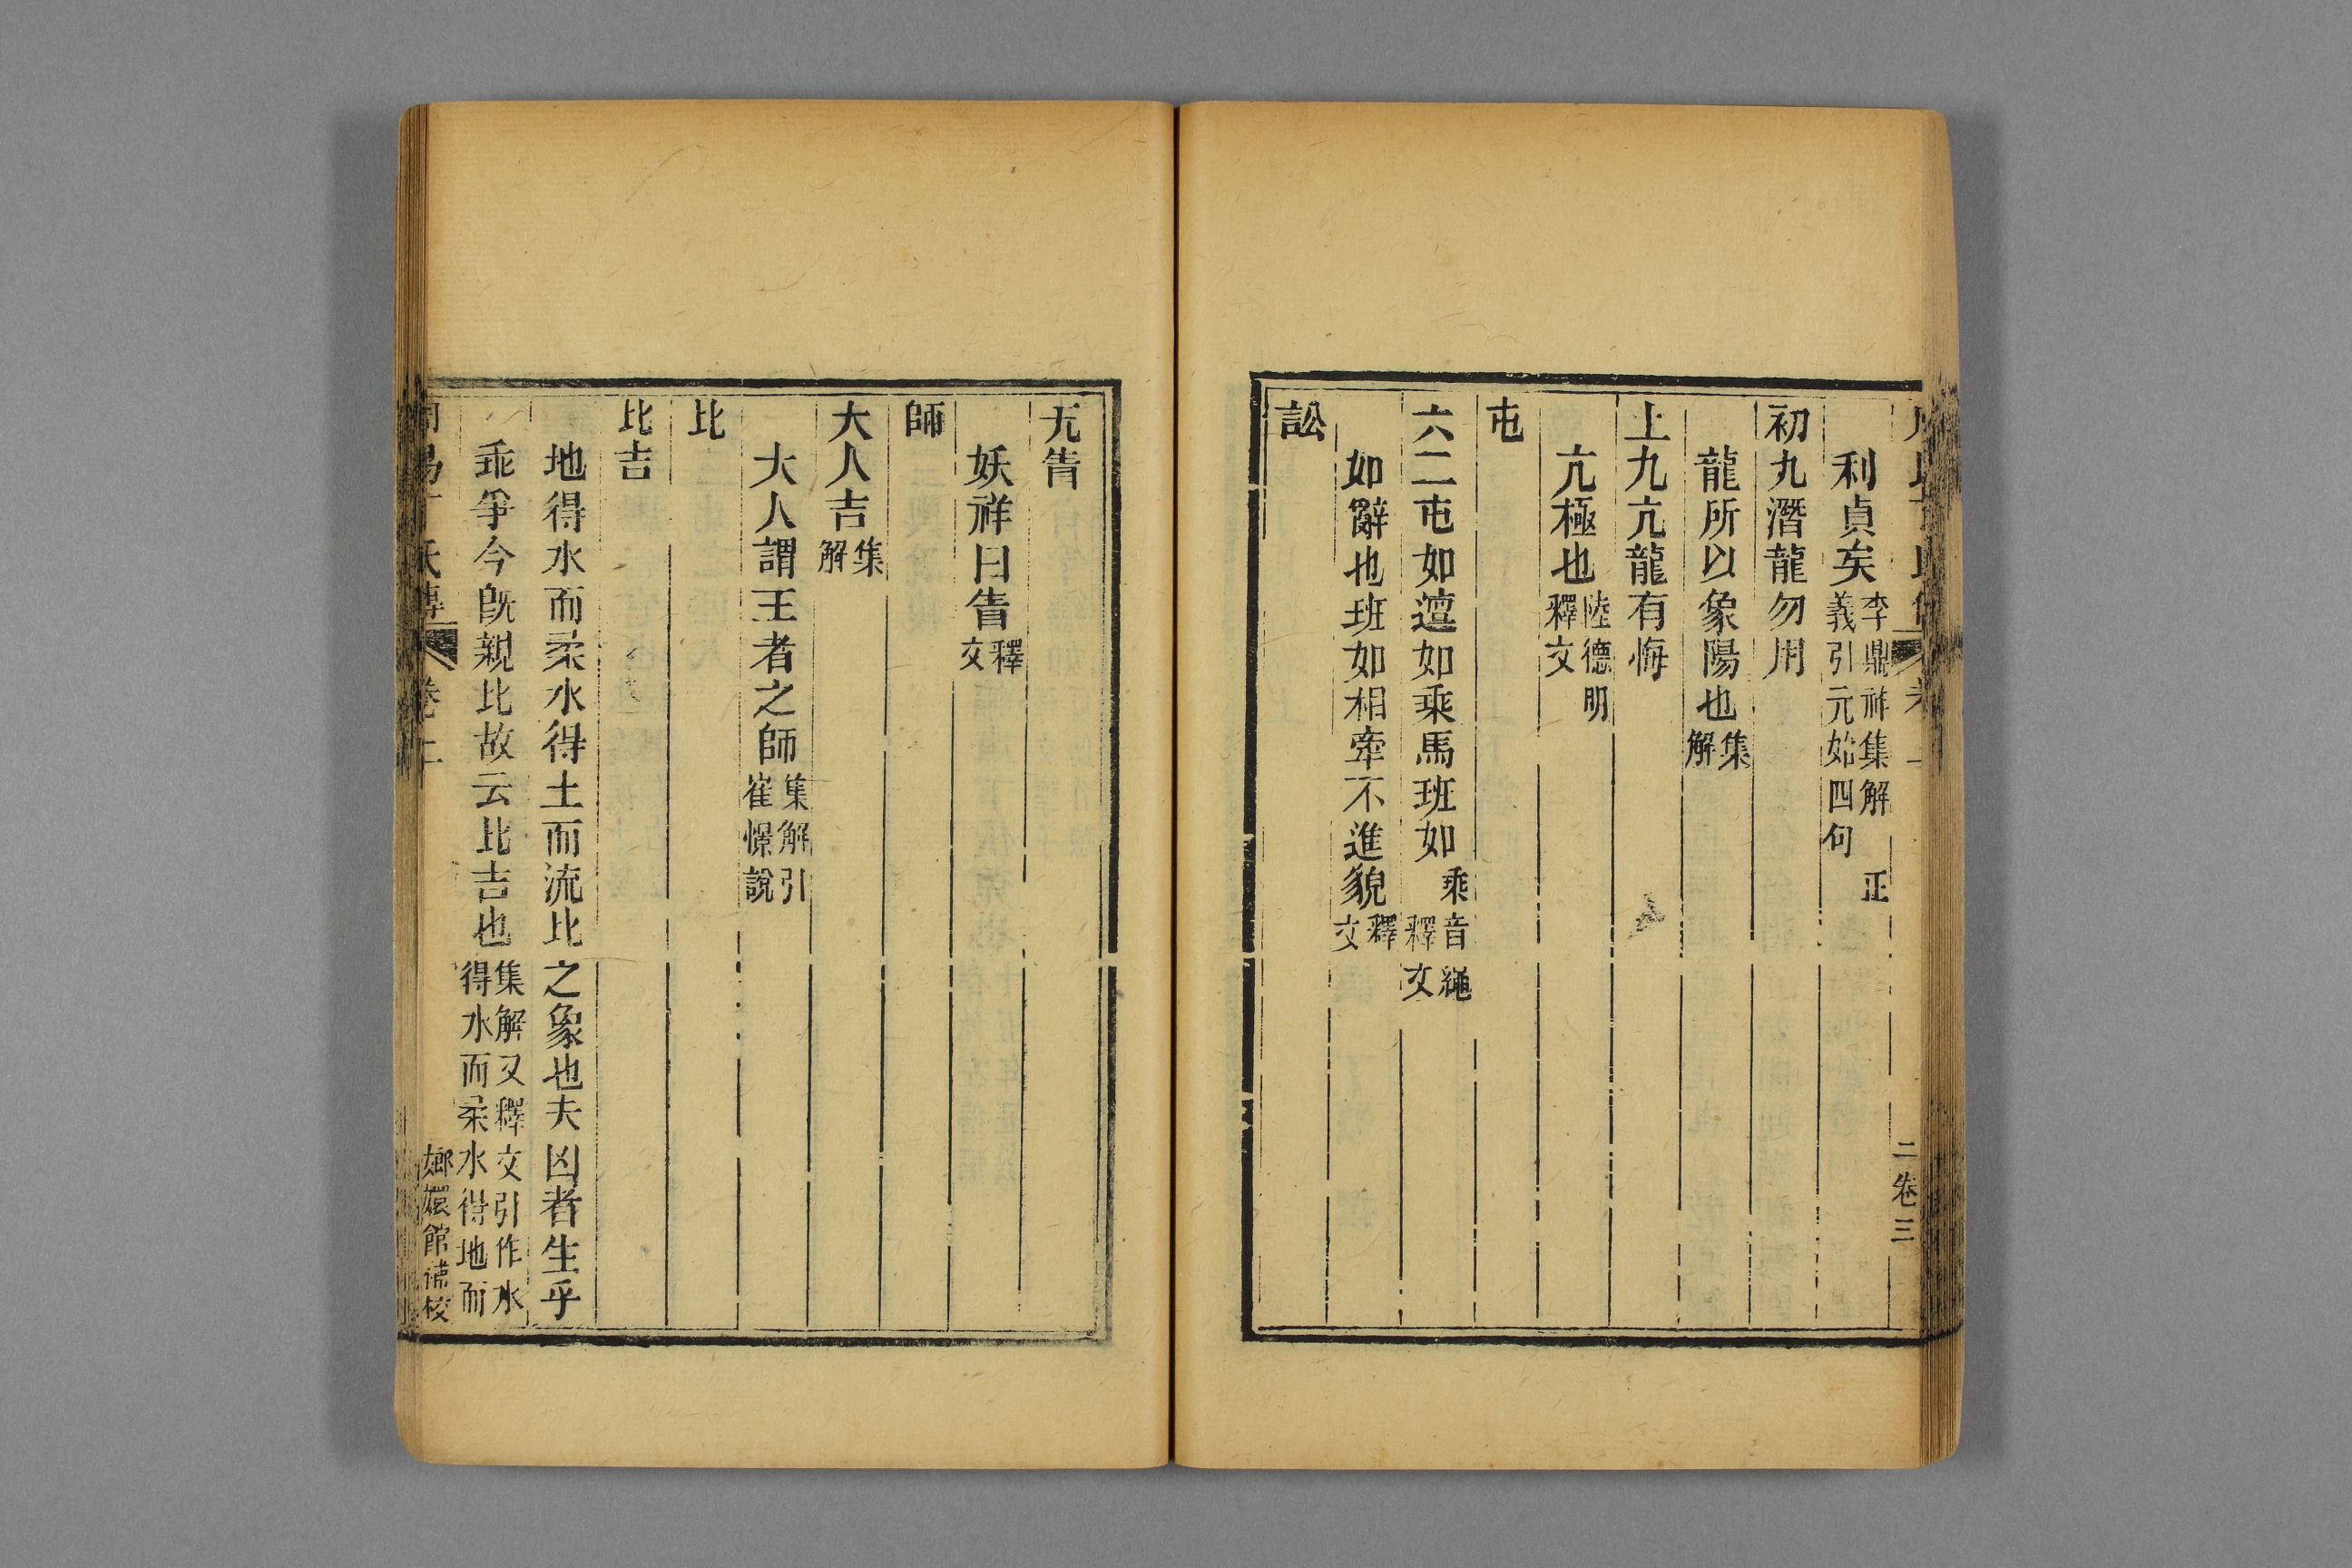 利貞矣李鼎祚集解 正義引元始四句
初九潛龍勿用
龍所以象陽也集解
上九亢龍有悔
亢極也陸德明釋文
屯
六二屯如邅如乘馬班如乘音繩釋文
如辭也班如相牽不進貌釋文
訟
无眚
妖祥曰眚釋文
師
大人吉集解
大人謂王者之師集解引崔憬說
比
比吉
地得水而柔水得土而流比之象也夫凶者生乎
乖爭今旣親比故云比吉也集解又釋文引作水得水而柔水得地而
二卷三
氏傳
卷上
嫏嬛館補校